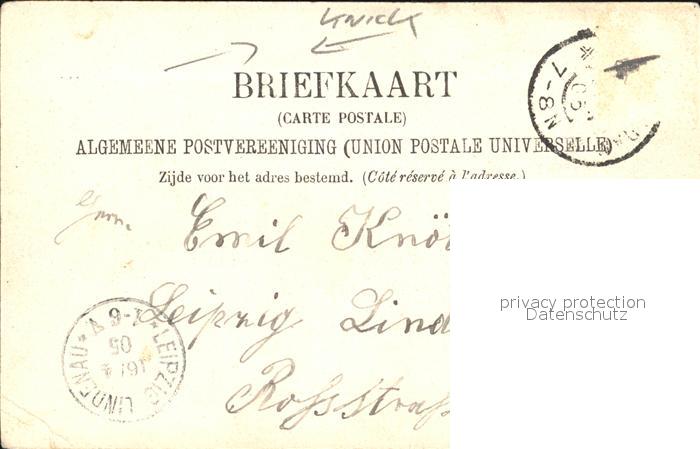 Knick
BRIEFKAART
(CARTE POSTALE)
ALGEMEENE POSTVEREENIGING (UNION POSTALE UNIVERSELLE)
Zijde voor het adres bestemd. (Côté réservé à l'adresse.)
7-8N
Herrn
Emil Knö
Leipzig Lind
Rossstraß
LEIPZIG LINDENAU
05
privacy protection
Datenschutz